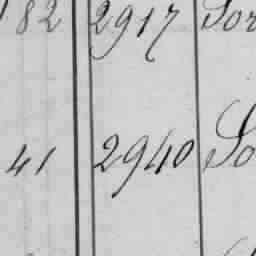 182 2917 Sor
41 2940 So